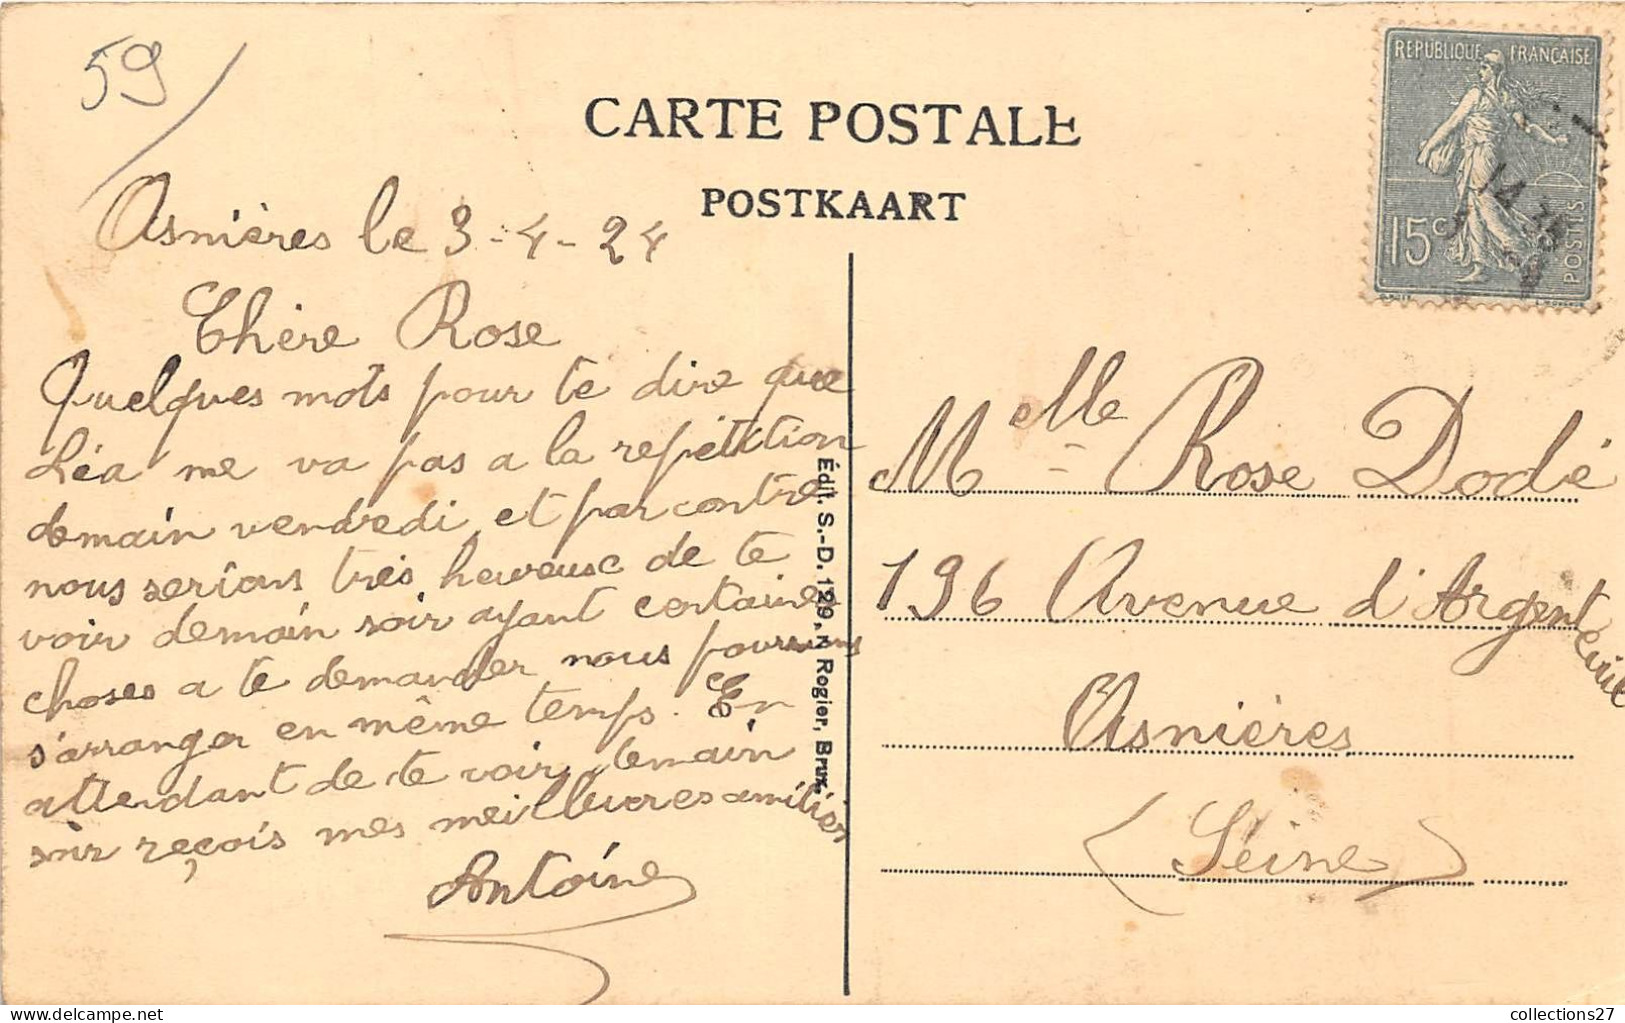 59
CARTE POSTALE
POSTKAART
REPUBLIQUE FRANÇAISE
15c
POSTES
Asnières le 3-4-24
Chère Rose
Quelques mots pour te dire que
Léa ne va pas a la repétition
demain vendredi et par contre
nous serions très heureuse de te
voir demain soir ayant certaines
choses a te demander nous pourrions
s'arranger en même temps. En
attendant de te voir demain
soir reçois mes meilleures amitiés
Antoine
Édit. S.-D. 129, r. Rogier, Brux.
Melle Rose Dodé
196 Avenue d'Argenteuil
Asnières
(Seine)
collections27